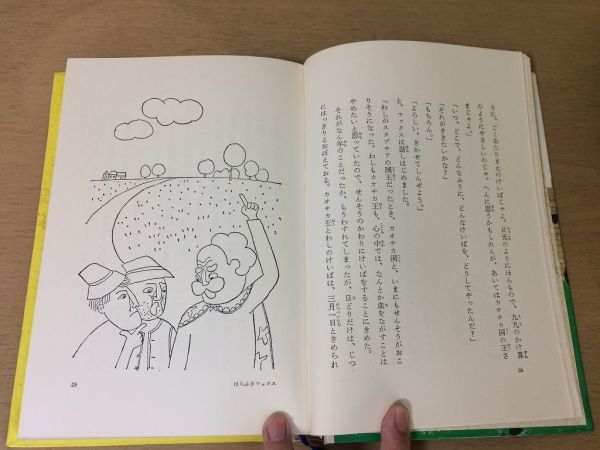 うに、ごくあたりまえのけいばじゃよ。日光のようにほんもので、九九のかけ算
のようにやさしいのじゃ。へんに思うかもしれんが、あいてはカオチカ国の王さ
まじゃよ。」
「いつ、どこで、どんなふうに、どんなけいばを、どうしてやったんだ？」
「それがききたいかな？」
「もちろん。」
「よろしい。きかせてしんぜよう。」
と、マックスは話しはじめました。
「わしがスタプチアの国王だったとき、カオチカ国と、いまにもせんそうがおこ
りそうになった。わしもカオチカ王も、心の中では、なんとか血をながすことは
やめたいと思っていたので、せんそうのかわりにけいばをすることにきめた。
それがなん年のことだったか、もうわすれてしまったが、日どりだけは、じつ
にはっきりとおぼえておる。カオチカ王とわしのけいばは、三月一日ときめられ
28
ほらふきマックス
29